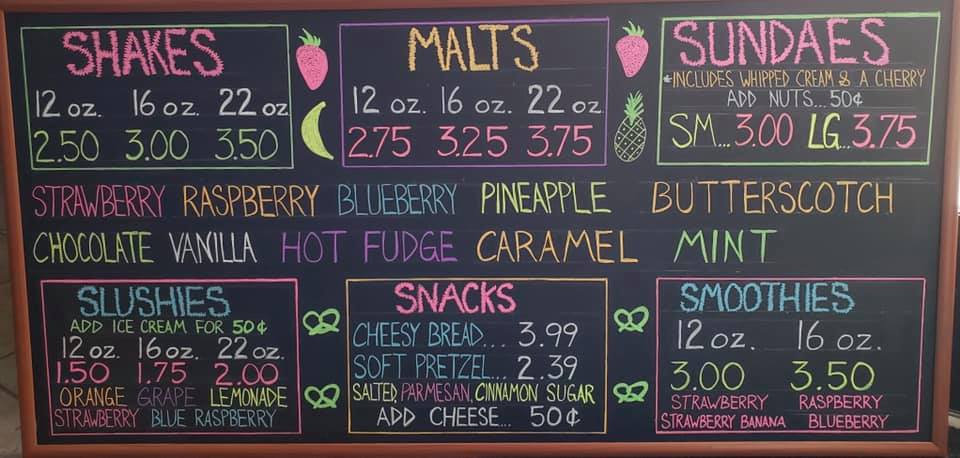 SHAKES
12 oz. 16 oz. 22 oz
2.50 3.00 3.50
MALTS
12 oz. 16 oz. 22 oz.
2.75 3.25 3.75
SUNDAES
*INCLUDES WHIPPED CREAM & A CHERRY
ADD NUTS...50¢
SM...3.00 LG...3.75
STRAWBERRY RASPBERRY BLUEBERRY PINEAPPLE BUTTERSCOTCH
CHOCOLATE VANILLA HOT FUDGE CARAMEL MINT
SLUSHIES
ADD ICE CREAM FOR 50¢
12 oz. 16 oz. 22 oz.
1.50 1.75 2.00
ORANGE GRAPE LEMONADE
STRAWBERRY BLUE RASPBERRY
SNACKS
CHEESY BREAD... 3.99
SOFT PRETZEL... 2.39
SALTED, PARMESAN, CINNAMON SUGAR
ADD CHEESE... 50¢
SMOOTHIES
12 oz. 16 oz.
3.00 3.50
STRAWBERRY RASPBERRY
STRAWBERRY BANANA BLUEBERRY